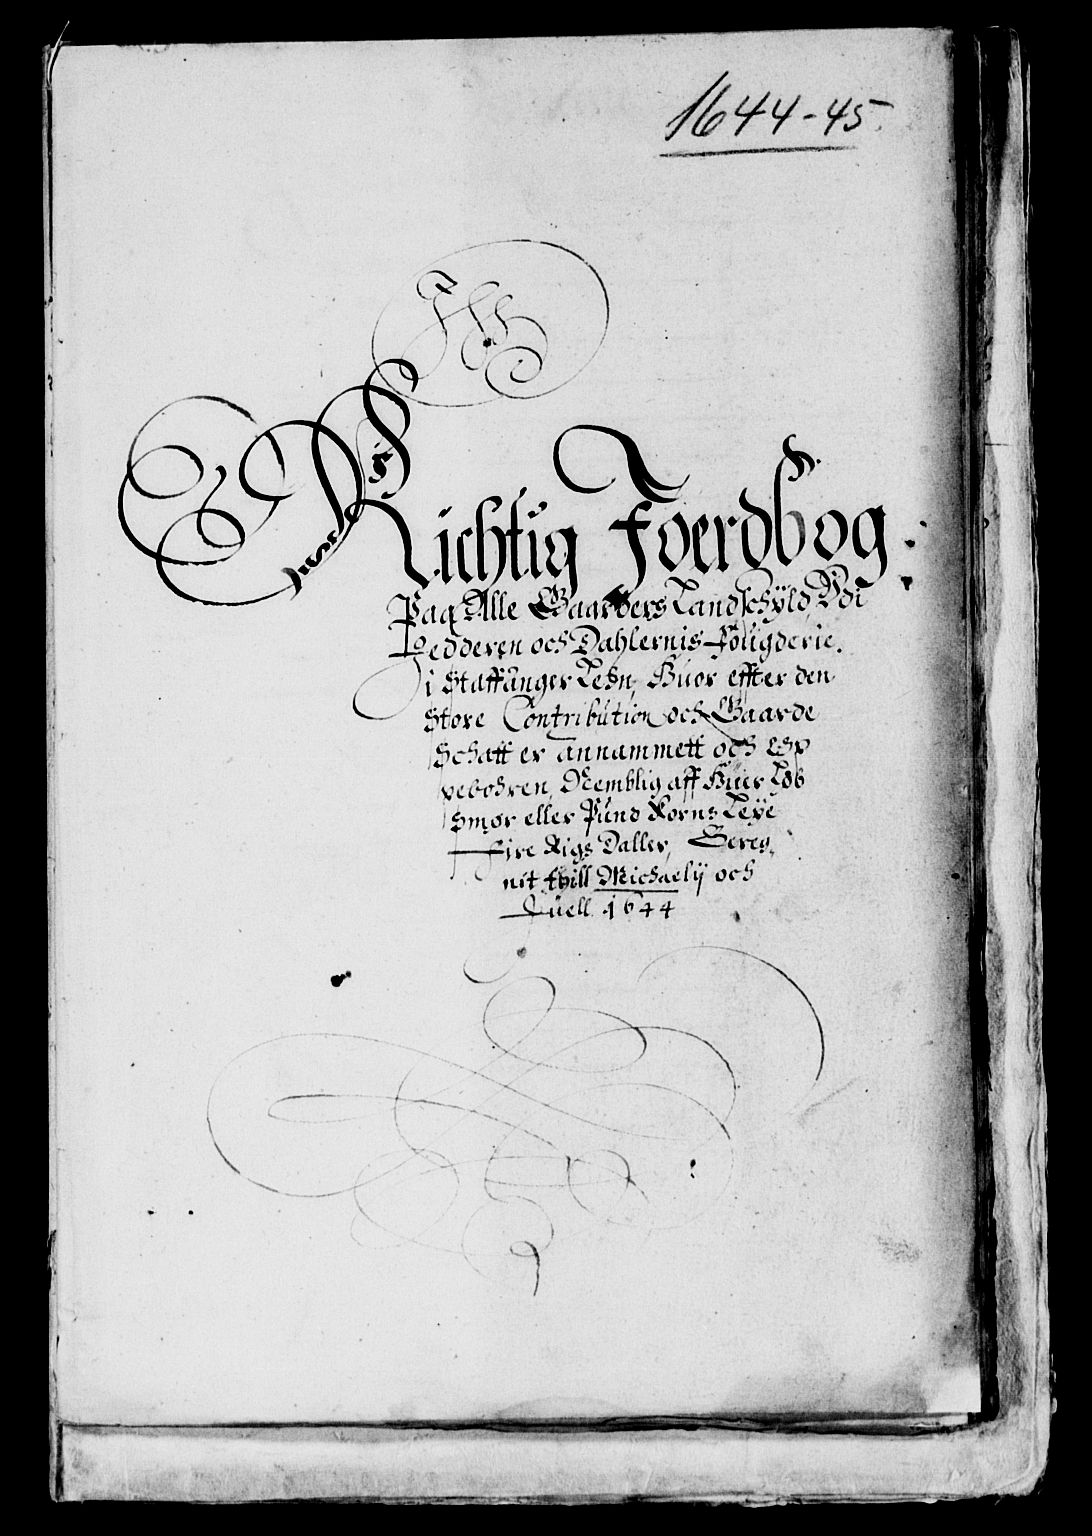 1644-45.
Richtig Joerdbog
Paa Alle Gaarders Landschÿld, Vdi
Jedderen och Dahlernis Fougderie.
i Staffanger Lehn, Huor effter den
Store Contribution och Gaarde
Schatt er annammett och op
pebohren, Nemblig aff Huer Løb
Smør eller Pund Korns Leÿe
Fire Rigs Daller, Bereg,
nit thill Michaelÿ och
Juell 1644